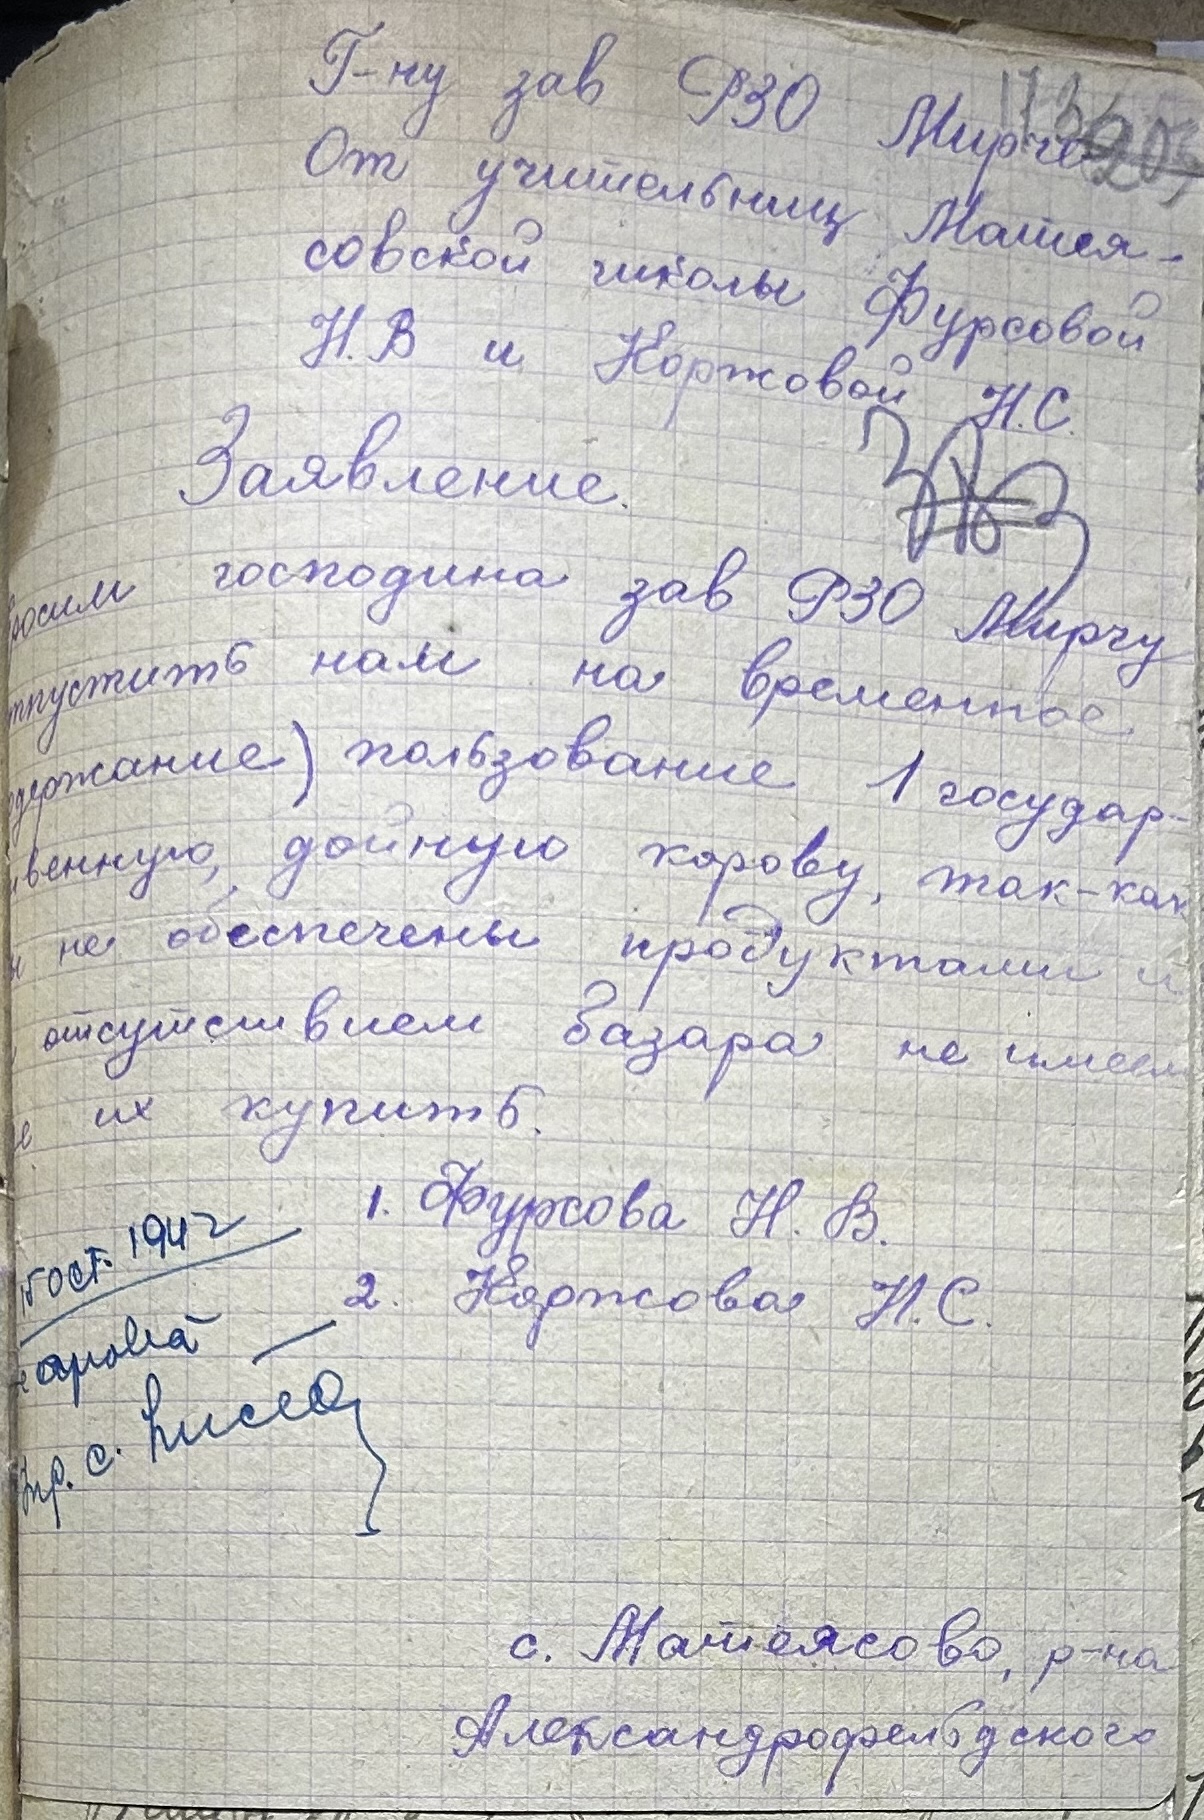 Г-ну зав РЗО Мирче
От учительниц Матея-
совской школы Фурсовой
Н.В и Коржовой Н.С.
Заявление.
росим господина зав РЗО Мирчу
тпустить нам на временное
держание) пользование 1 государ-
венную, дойную корову, так-как
не обеспечены продуктами и
отсутствием базара не имеем
их купить.
1. Фурсова Н. В.
2. Коржова Н.С.
1942
с.
с. Матеясово, р-на
Александрофельдского